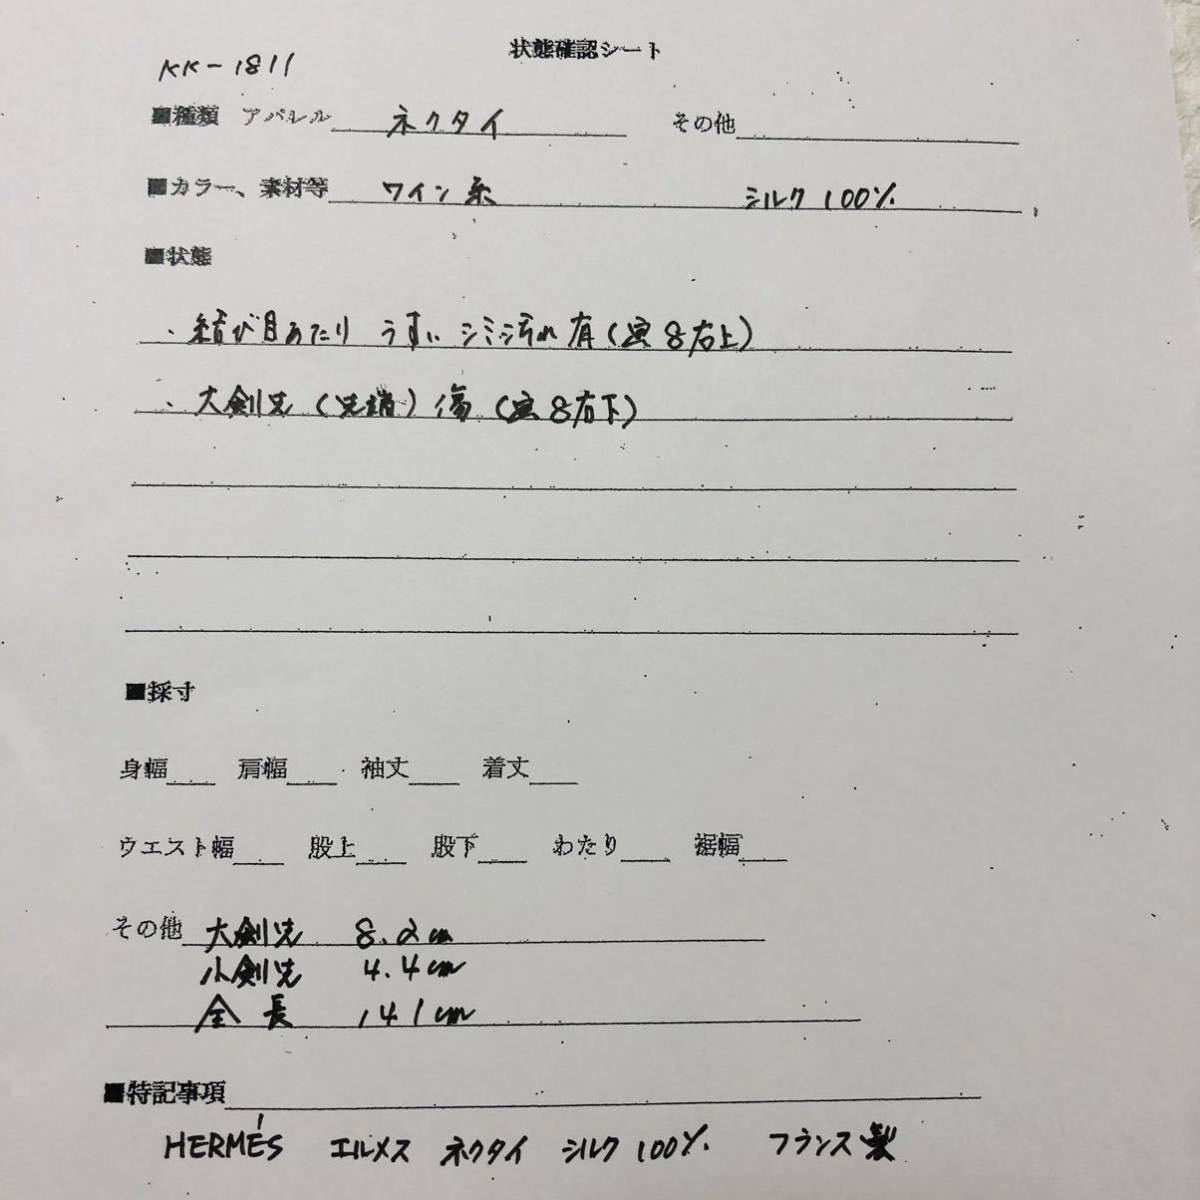 状態確認シート
KK-1811
■種類 アパレル ネクタイ その他
■カラー、素材等 ワイン系 シルク 100%
■状態
・結び目あたり うすい シミ汚れ有(画8右上)
・大剣先(先端)傷(画8右下)
■採寸
身幅 肩幅 袖丈 着丈
ウエスト幅 股上 股下 わたり 裾幅
その他 大剣先 8.2cm
小剣先 4.4cm
全長 141cm
■特記事項
HERMÉS エルメス ネクタイ シルク 100% フランス製